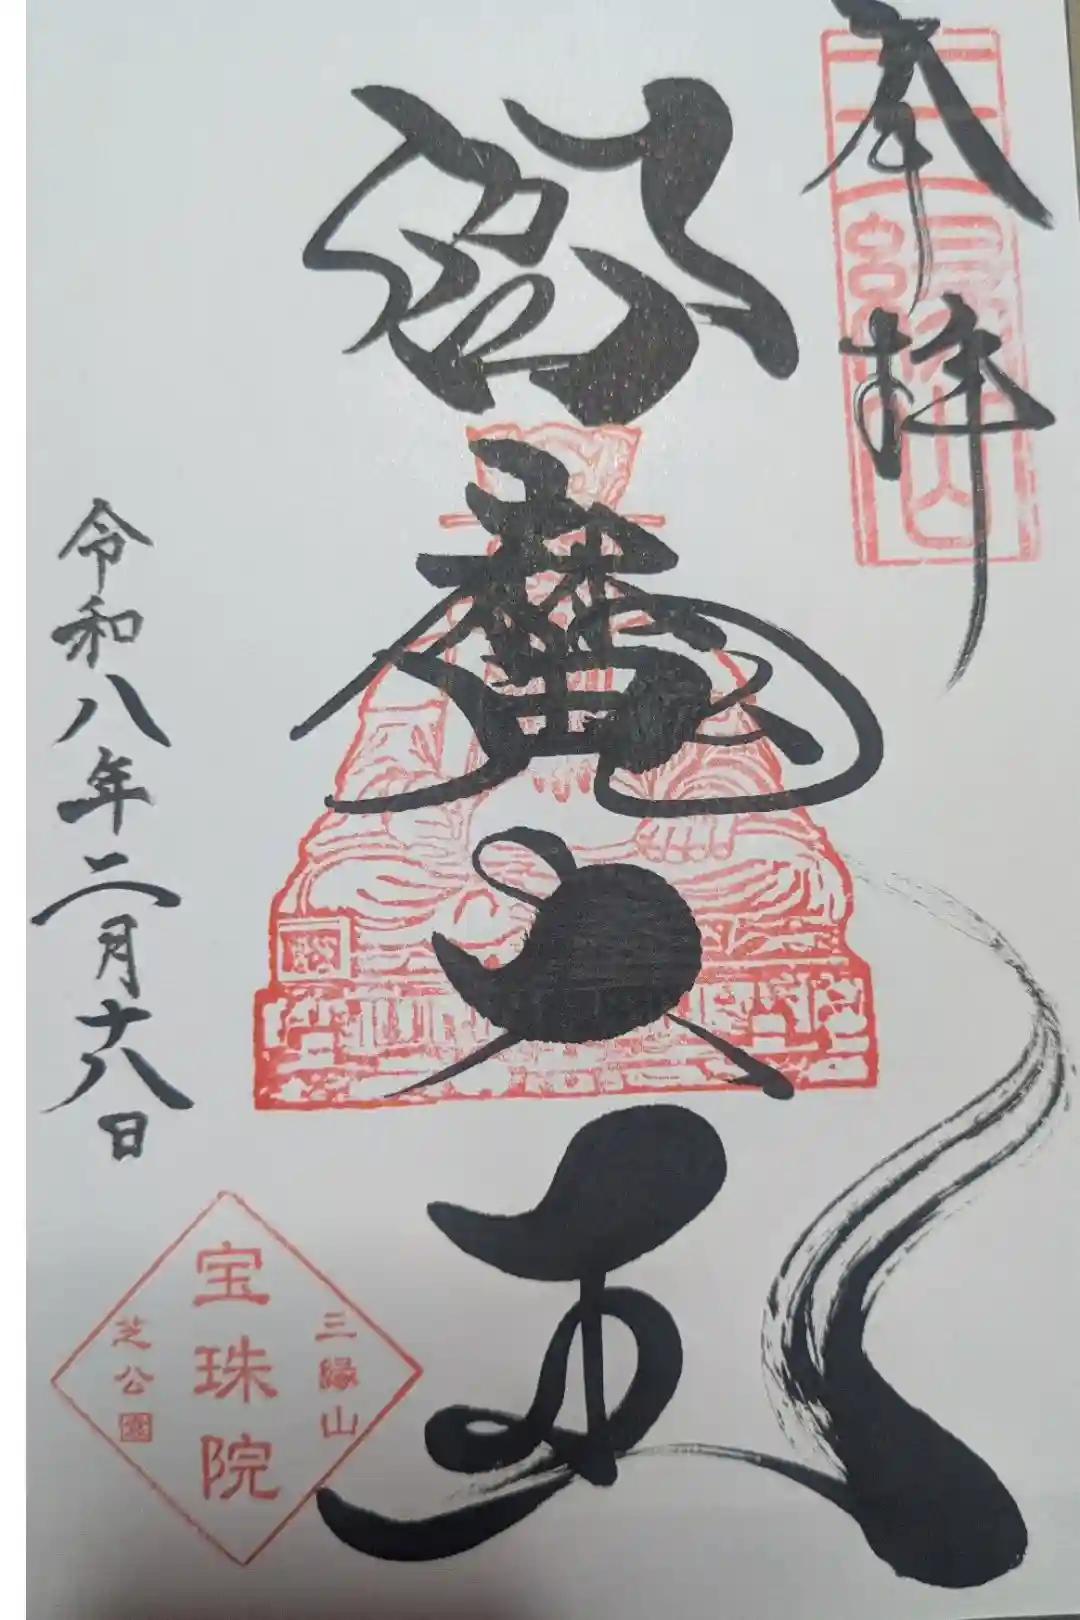 奉拝
三縁山
閻魔大王
令和八年二月十八日
三縁山
宝珠院
芝公園